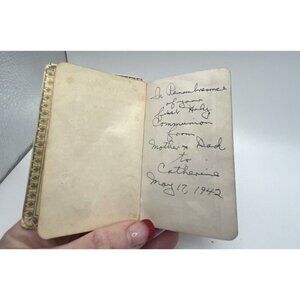 In Remembrance
of your
first Holy
Communion
from
Mother & Dad
to
Catherine
May 17, 1942